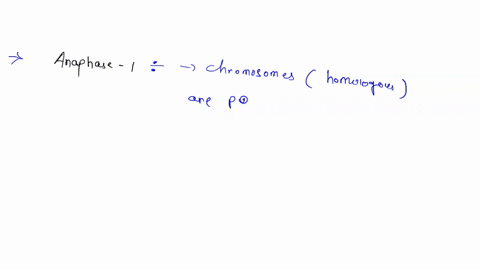 → Anaphase - 1 ÷ → chromosomes ( homologous )
are p